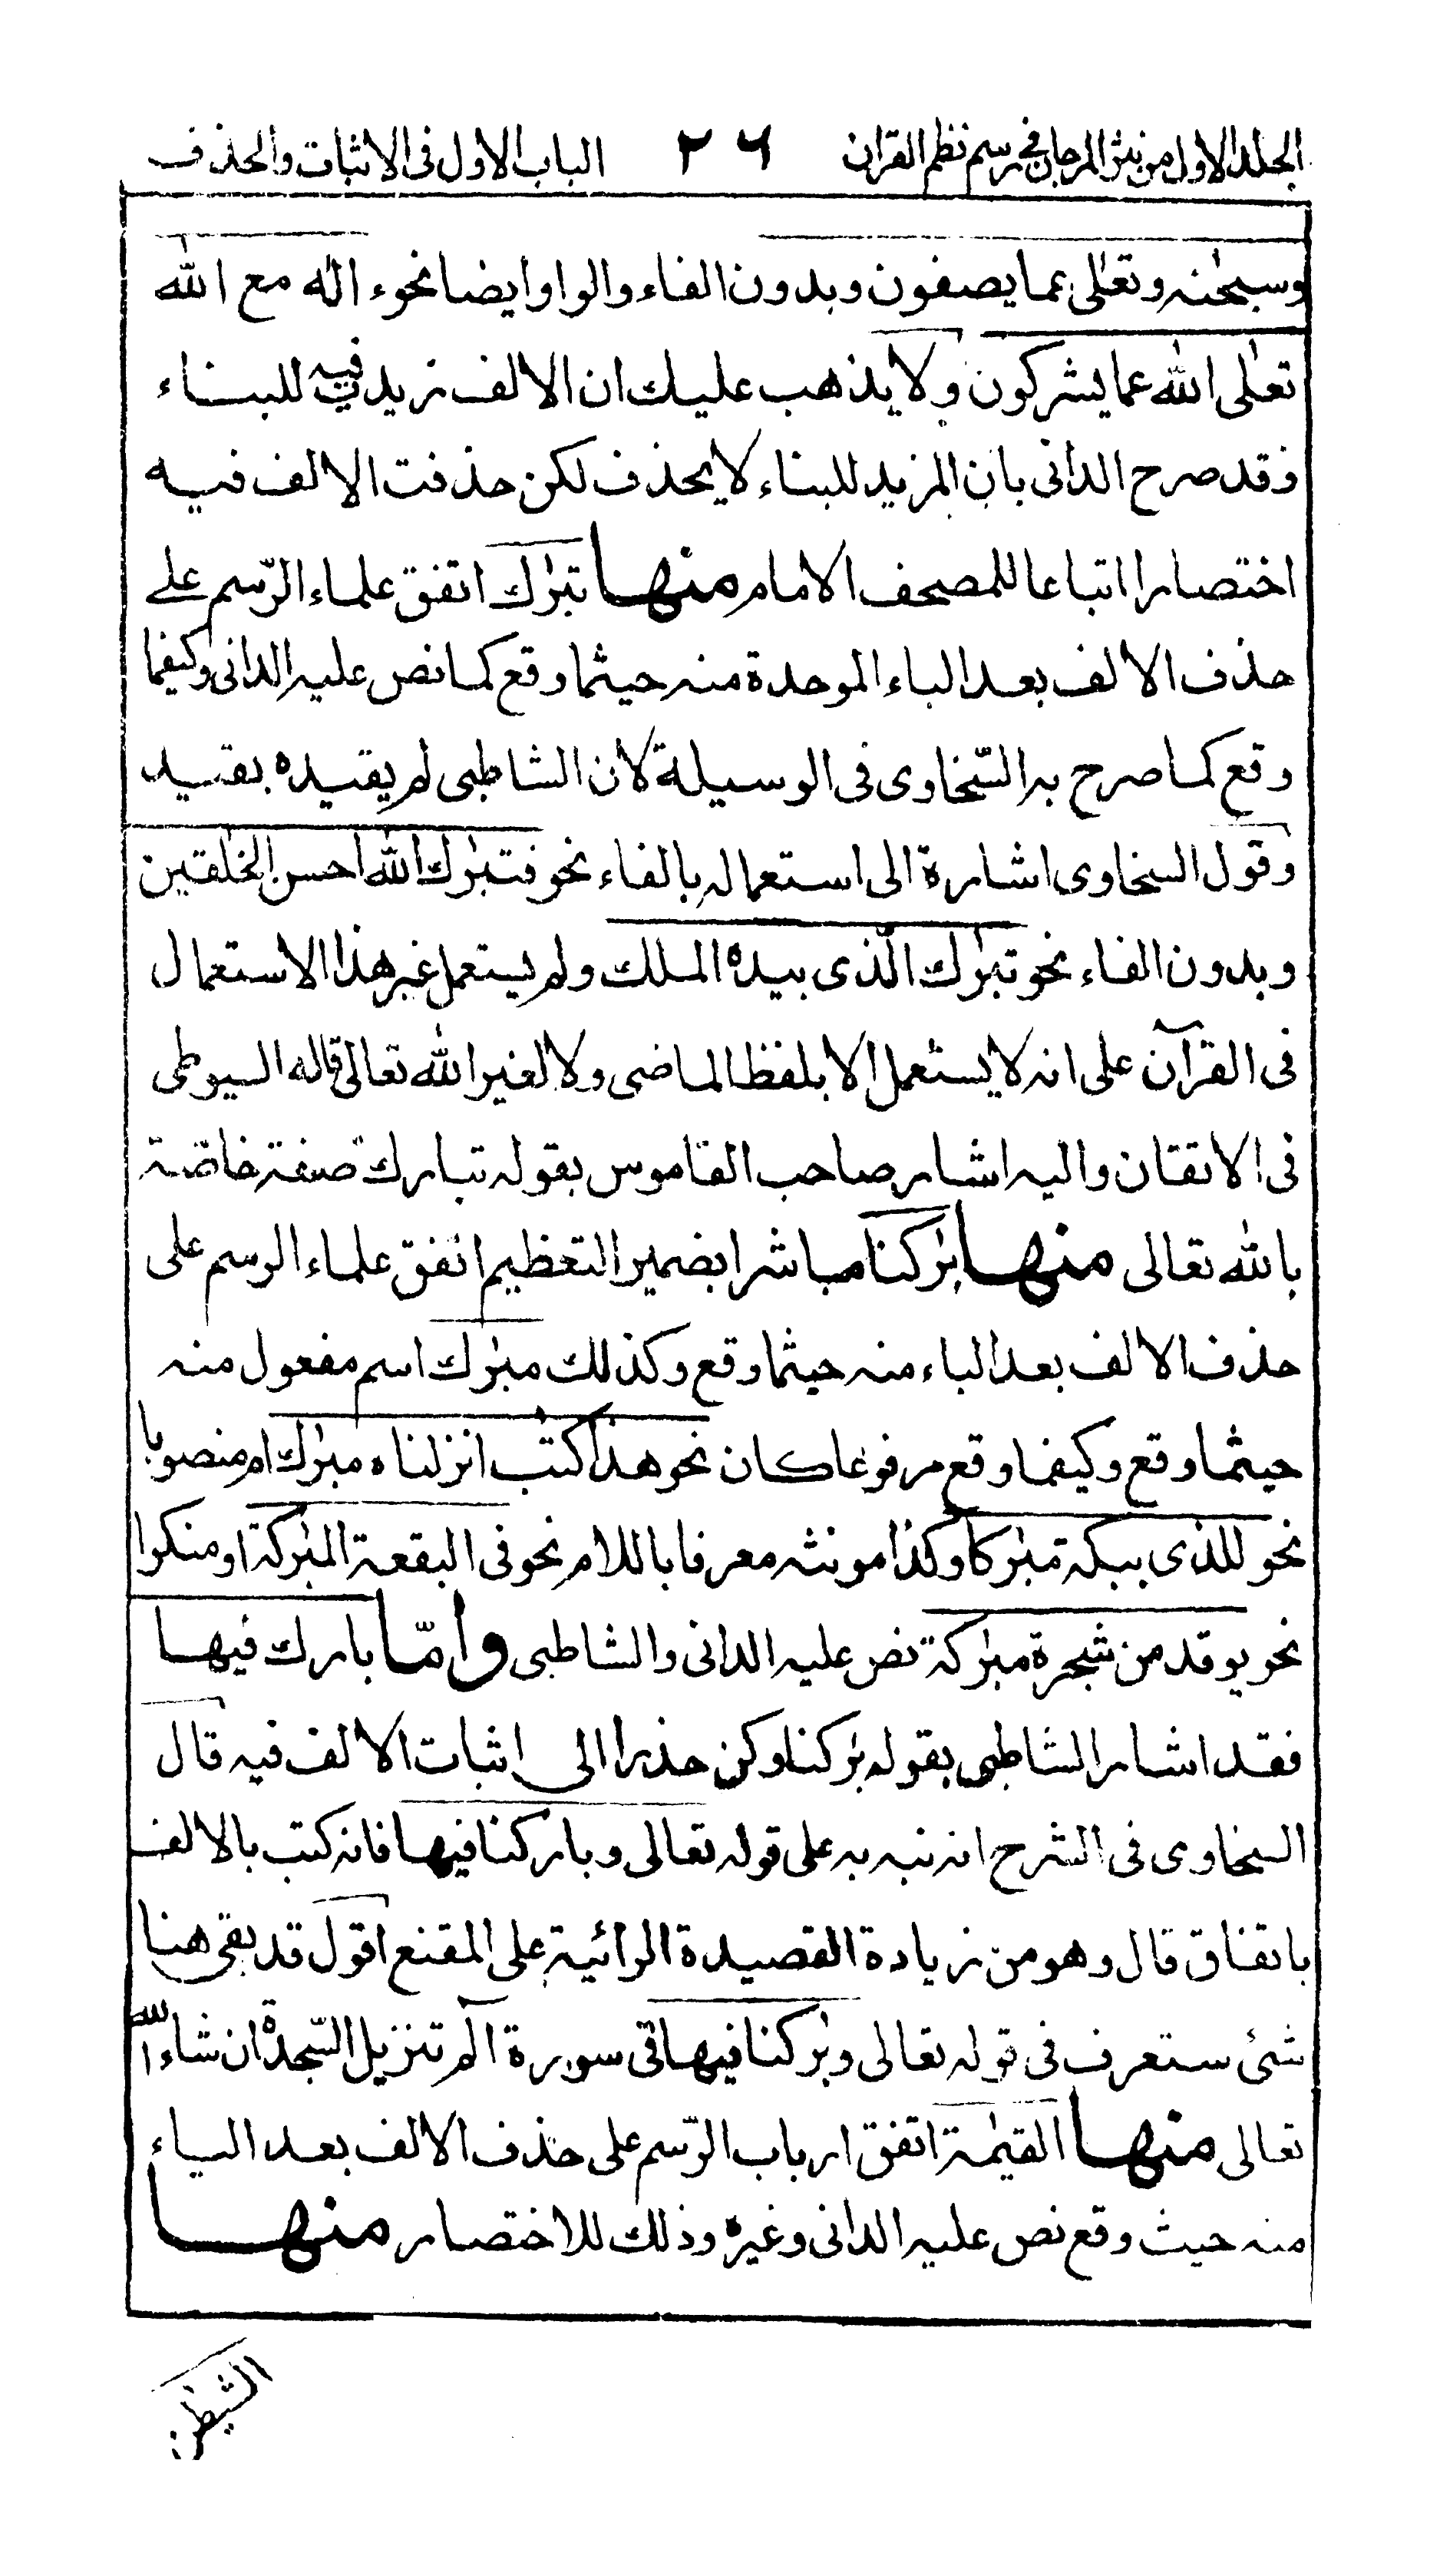 الجلد الاول من نثر المرجان فى رسم نظم القران ٢٦ الباب الاول فى الاثبات والحذف
وسبحٰنه وتعٰلى عما يصفون وبدون الفاء والواو ايضا نحوء اله مع الله
تعٰلى الله عما يشركون ولا يذهب عليك ان الالف زيد فيه للبناء
وقد صرح الدانى بان المزيد للبناء لا يحذف لكن حذفت الالف فيه
اختصارا اتباعا للمصحف الامام منها تبٰرك اتفق علماء الرّسم على
حذف الالف بعد الباء الموحدة منه حيثما وقع كما نص عليه الدانى وكيفما
وقع كما صرح به السّخاوى فى الوسيلة لان الشاطبى لم يقيده بقيد
وقول السخاوى اشارة الى استعماله بالفاء نحو فتبٰرك الله احسن الخٰلقين
وبدون الفاء نحو تبٰرك الّذى بيده الملك ولم يستعمل غير هذا الاستعمال
فى القرآن على انه لا يستعمل الا بلفظ الماضى ولا لغير الله تعالى قاله السيوطى
فى الاتقان واليه اشار صاحب القاموس بقوله تبارك صفة خاصّة
بالله تعالى منها بٰركنا مباشرا بضمير التعظيم اتفق علماء الرسم على
حذف الالف بعد الباء منه حيثما وقع وكذلك مبٰرك اسم مفعول منه
حيثما وقع وكيفما وقع مرفوعا كان نحو هذا كتٰب انزلناه مبٰرك ام منصوبا
نحو للذى ببكة مبٰركا وكذا مونثه معرفا باللام نحو فى البقعة المبٰركة او منكرا
نحو يوقد من شجرة مبٰركة نص عليه الدانى والشاطبى وامّا بارك فيها
فقد اشار الشاطبى بقوله بٰركنا وكن حذرا الى اثبات الالف فيه قال
السخاوى فى الشرح انه نبه به على قوله تعالى وباركنا فيها فانه كتب بالالف
باتفاق قال وهو من زيادة القصيدة الرائية على المقنع اقول قد بقى هنا
شئ ستعرف فى قوله تعالى وبٰركنا فيها فى سورة الٓم تنزيل السّجدة ان شاء الله
تعالى منها القيٰمة اتفق ارباب الرّسم على حذف الالف بعد الياء
منه حيث وقع نص عليه الدانى وغيره وذلك للاختصار منها
الشيٰطن